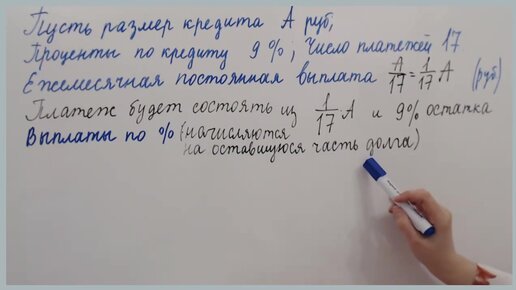 Пусть размер кредита А руб,
Проценты по кредиту 9%; Число платежей 17
Ежемесячная постоянная выплата А/17 = 1/17 А (руб)
Платеж будет состоять из 1/17·А и 9% остатка
Выплаты по % (начисляются
на оставшуюся часть долга)